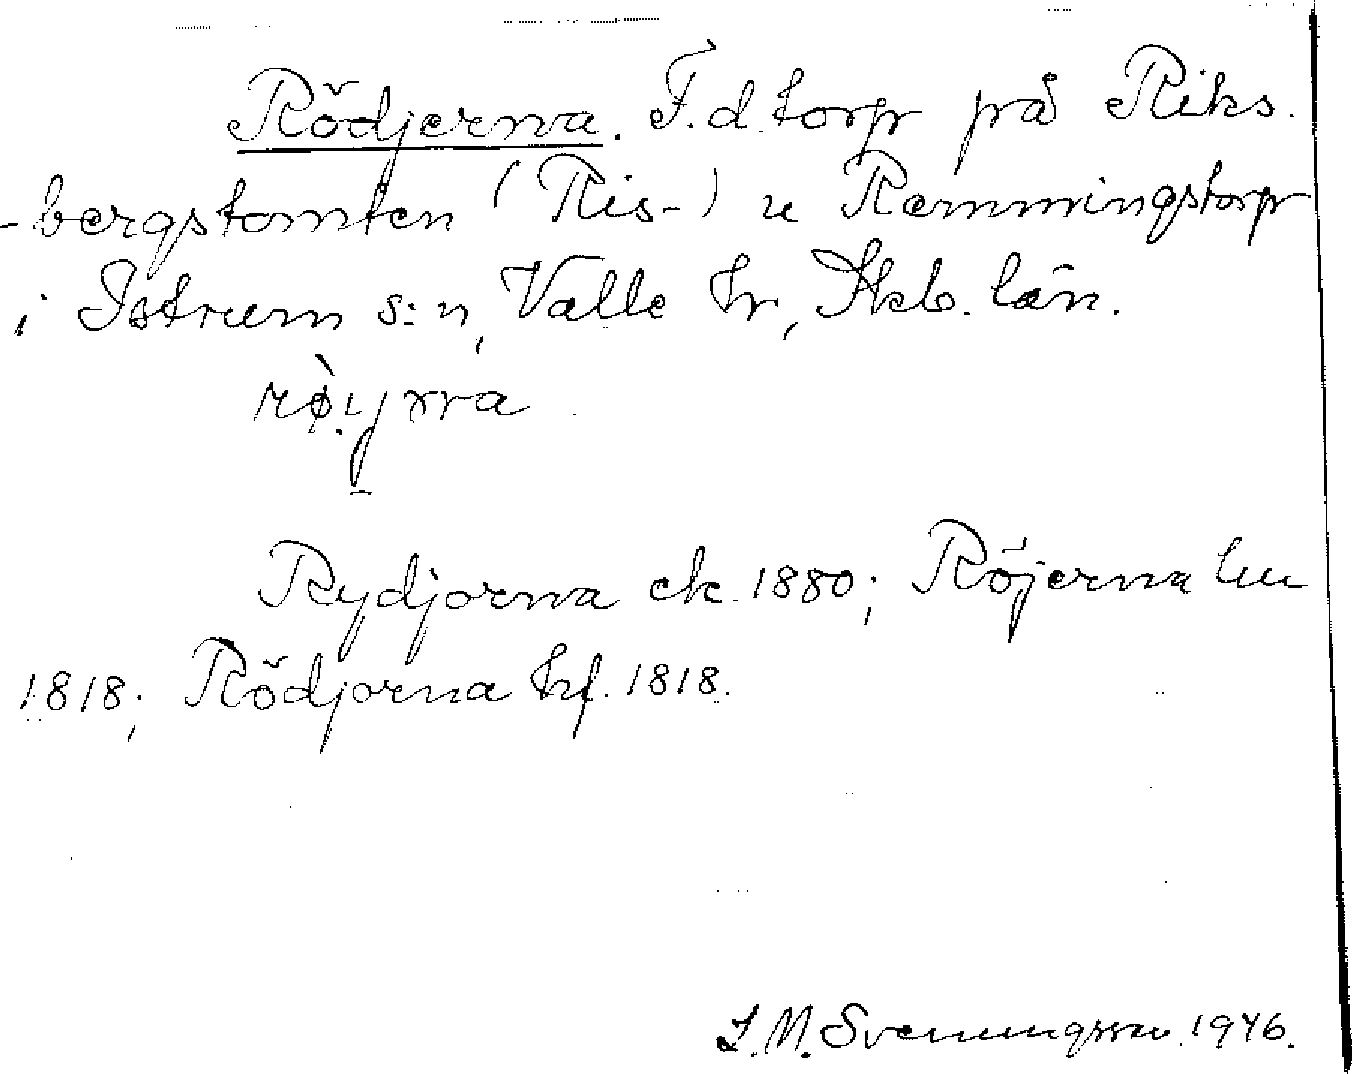 Rödjerna. F.d. torp på Riks-
-bergstomten (Ris-) u Remmingstorp
i Istrum s:n, Valle hr, Skb. län.
Rydjorna ek. 1880; Röjerna hu
1818; Rödjorna hf. 1818.
Svenungsson 1946.